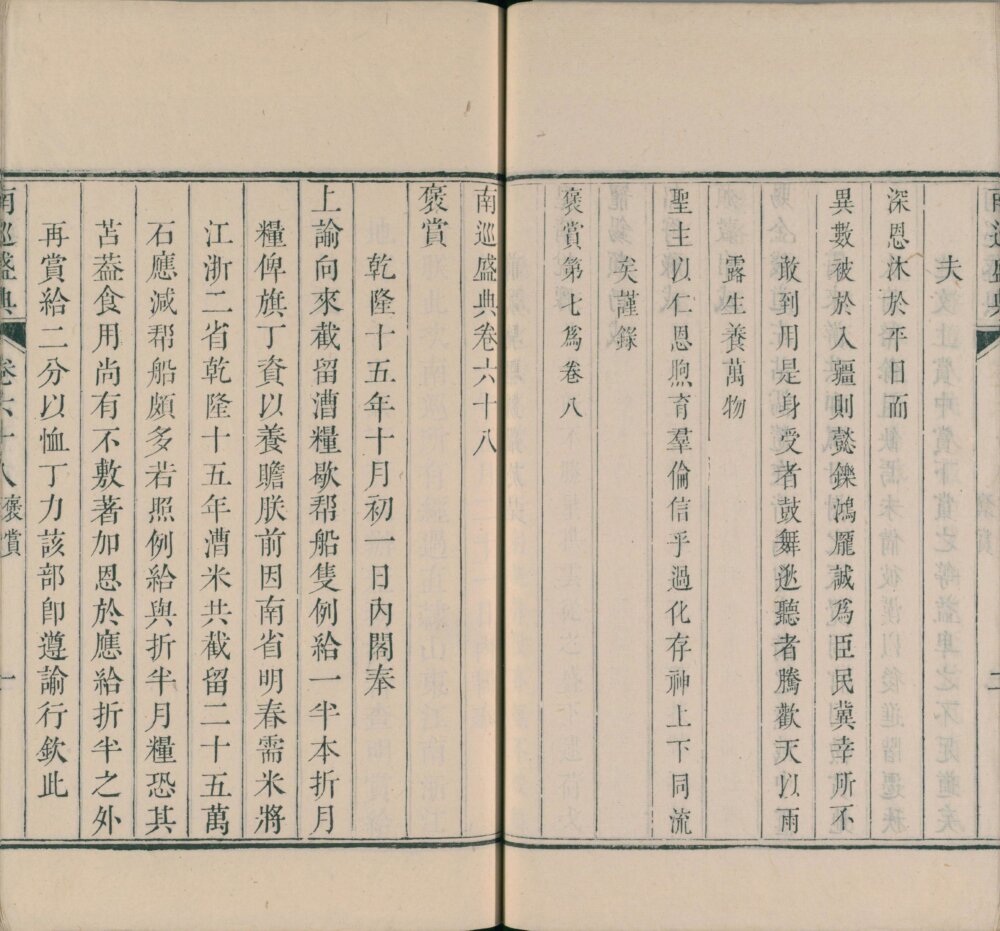 夫
深恩沐於平日而
異數被於入疆則懿鑠鴻龎誠爲臣民冀幸所不
敢到用是身受者鼓舞逖聽者騰歡天以雨
露生養萬物
聖主以仁恩煦育羣倫信乎過化存神上下同流
矣謹錄
褒賞第七爲卷八
南巡盛典卷六十八
褒賞
乾隆十五年十月初一日內閣奉
上諭向來截留漕糧歇帮船隻例給一半本折月
糧俾旗丁資以養贍朕前因南省明春需米將
江浙二省乾隆十五年漕米共截留二十五萬
石應減帮船頗多若照例給與折半月糧恐其
苫葢食用尚有不敷著加恩於應給折半之外
再賞給二分以恤丁力該部卽遵諭行欽此
南巡盛典 卷六十八 褒賞 一